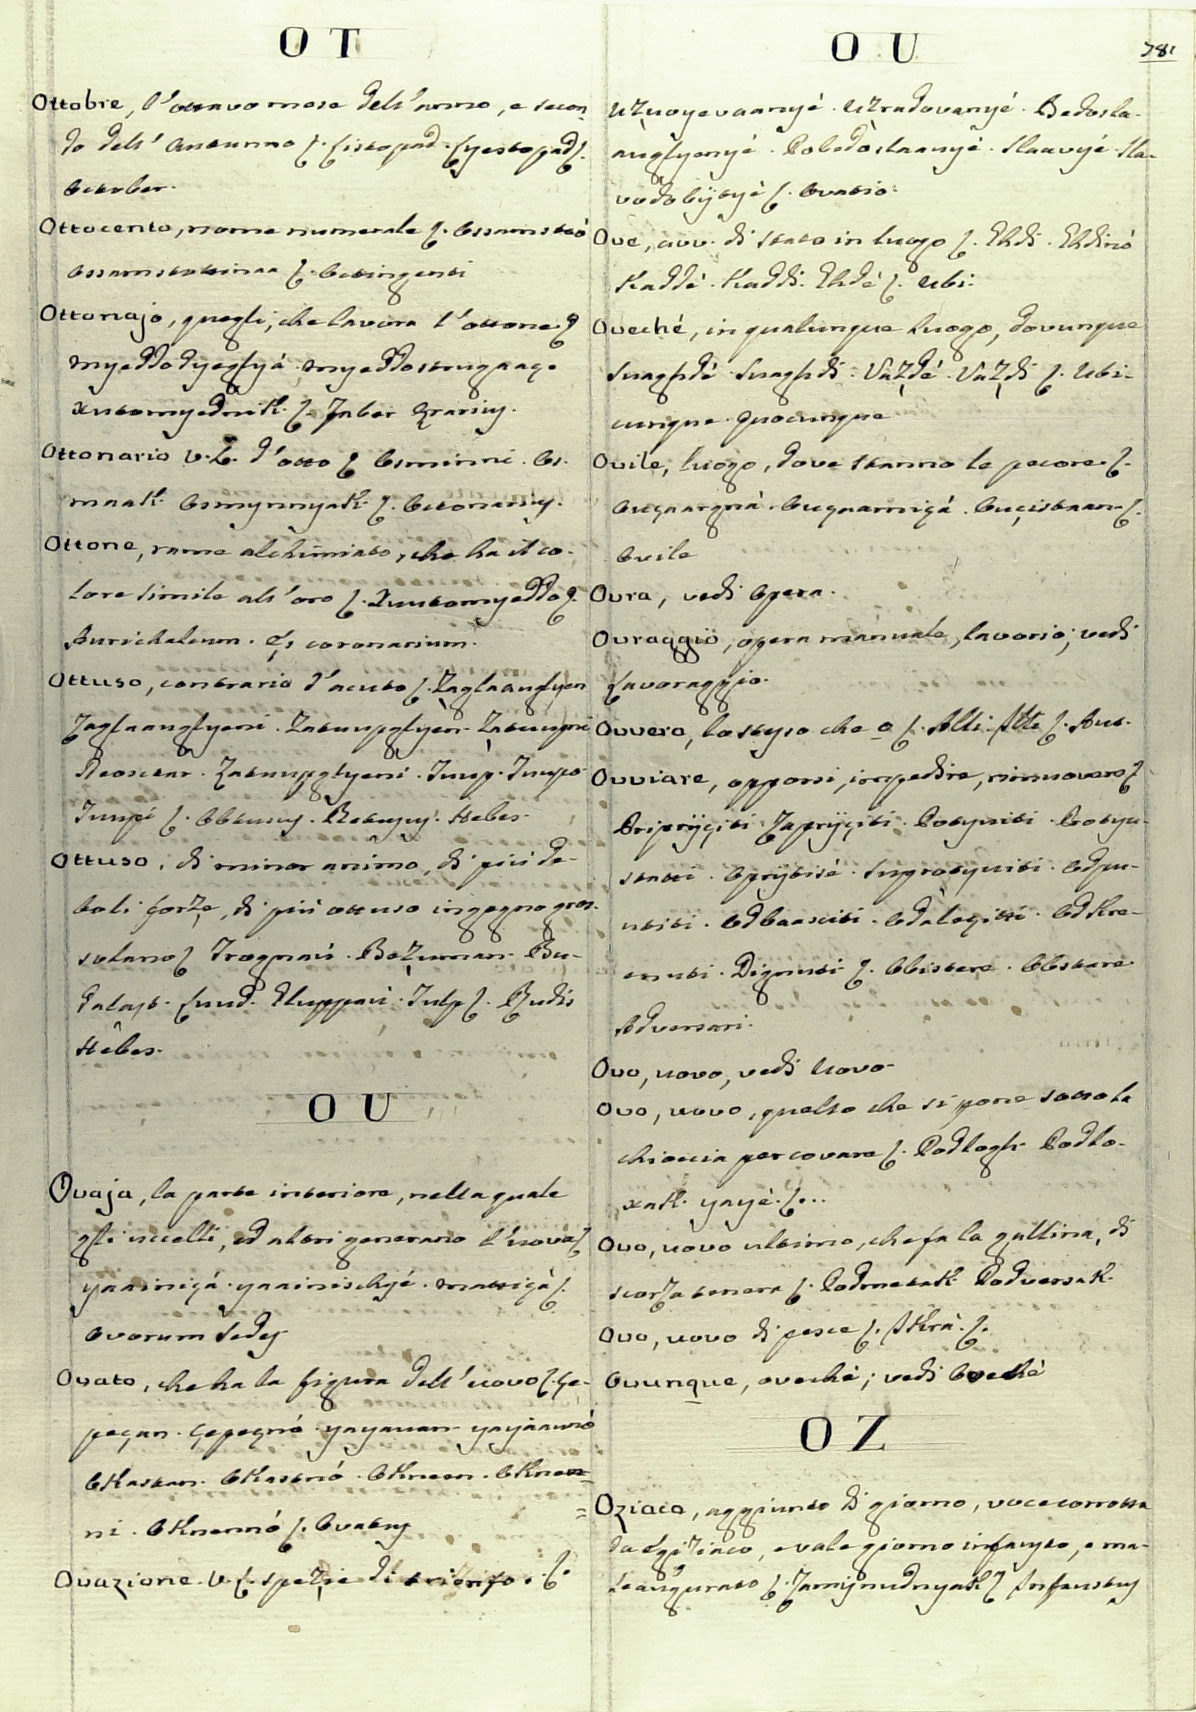 OT
Ottobre, l'ottavo mese dell'anno, e secon
do dell'Autunno ʃ. Listopad. Lyestopad ʃ.
October.
Ottocento, nome numerale ʃ. Ossamstoó
ossamstotinaa ʃ. Octingenti
Ottonajo, quegli, che lavora l'ottone ʃ
myeddodyeglyá myeddostrugaaç.
xutomyednik. ʃ. Faber Ærarius.
Ottonario v. L. d'otto ʃ Osminni. Os-
maak Osmynnyak ʃ. Octonarius.
Ottone, rame alchimiato, che ha il co-
lore simile all'oro ʃ. Xuutomyeddo ʃ.
Aurichalcum. Æs coronarium.
Ottuso, contrario d'acuto ʃ. Zaglaanglyen
Zaglaanglyeni. Zatuupglyen.
Neosctar. Zatuupglyeni. Tuup. Tuupo
Tuupi ʃ. Obtusus. Retusus. Hebes.
Ottuso, di minor animo, di piú de-
boli forze, di piú ottuso ingegno gros-
solano ʃ Bezuman. Bu-
dalast. Luud. Tulp ʃ. Rudis
Hebes.
OU
Ovaja, la parte interiore, nella quale
gli uccelli, ed altri generano l'uova ʃ
yaainiçá. yaainischyé. matiçà ʃ.
Ovorum Sedes
Ovato, che ha la figura dell'uovo ʃ. Çe-
peçan. Çepeçnó. yayaaan. yayaannó
Okastan. Okastnó. Oknoon. Oknon=
ni. Oknonnó ʃ. Ovatus
Ovazione. V. L. spezie di trionfo. ʃ.
OU
781
Uzvoyevaanyé. Uzradovanyé. Bedosla-
Pobedoslaanyé. Slaavyé. Sla-
vodobÿtyé ʃ. Ovatio.
Ove, avv. di stato in luogo ʃ. Ghdi. Ghdinó
Kaddé. Kaddi. Ghdé ʃ. Ubi.
Oveché, in qualunque luogo, dovunque
Svaghdé. Svaghdi. Vazdé. Vazdi ʃ. Ubi-
cunque. Quocunque
Ovile, luogo, dove stanno le pecore. ʃ.
Ovçaargná. Ovçaarniçá. Ovçistaan ʃ.
Ovile
Ovra, vedi Opera.
Ovraggio, opera manuale, lavorio; vedi
Lavoraggio.
Ovvero, lo stesso che o ʃ. Alli. Alle ʃ. Aut.
Ovviare, opporsi, impedire, rimuovere ʃ
Pripriçiti. Zapriçiti.
Odpu-
utiti. Odbaasciti. Odalogitti. Odkre-
enuti. Dignuti ʃ. Obsistere. Obstare.
Adversari.
Ovo, uovo, vedi Uovo.
Ovo, uovo, quello che si pone sotto la
chioccia per covare ʃ. Podlogh. Podlo-
xak. yayé. ʃ...
Ovo, uovo ultimo, che fa la gallina, di
scorza tenera ʃ. Podmetak. Podversak.
Ovo, uovo di pesce ʃ. Ikrà. ʃ.
Ovunque, oveché; vedi Oveché
OZ
Oziaco, aggiunto di giorno, voce corrotta
da Egiziaco, e vale giorno infausto, e ma-
leaugurato ʃ. Infaustus